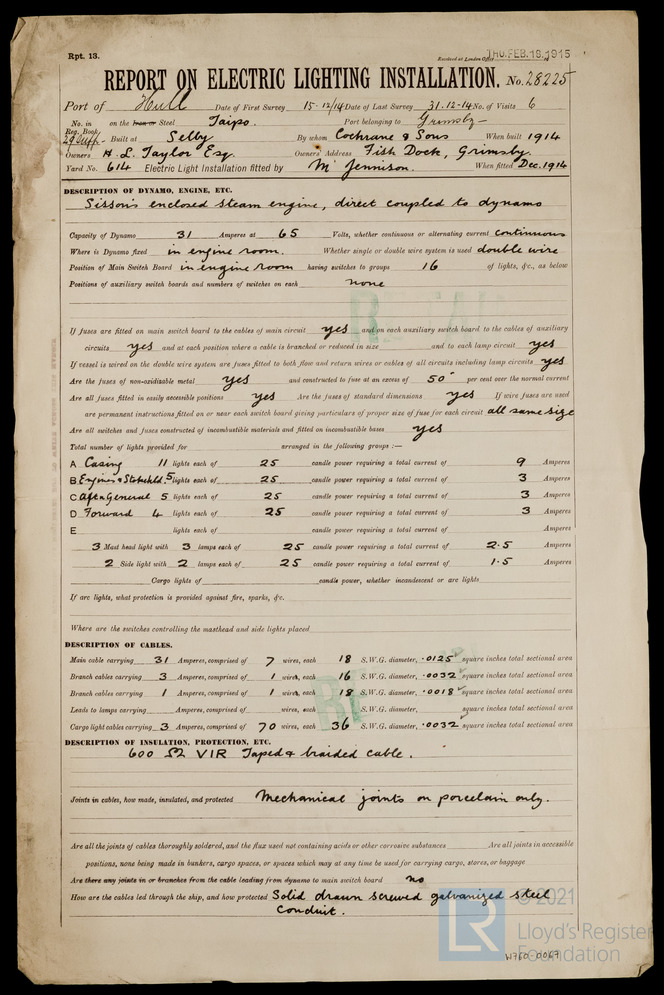 Rpt. 13.
Received at London Office THU. FEB. 18. 1915
REPORT ON ELECTRIC LIGHTING INSTALLATION. No. 28225
Port of Hull Date of First Survey 15-12/14 Date of Last Survey 31.12-14 No. of Visits 6
No. in Reg. Book on the Iron or Steel Taipo. Port belonging to Grimsby
29 Supp. Built at Selby By whom Cochrane & Sons When built 1914
Owners H. L. Taylor Esq. Owners' Address Fish Dock, Grimsby.
Yard No. 614 Electric Light Installation fitted by Mr Jennison. When fitted Dec. 1914
DESCRIPTION OF DYNAMO, ENGINE, ETC.
Sisson's enclosed steam engine, direct coupled to dynamo
Capacity of Dynamo 31 Amperes at 65 Volts, whether continuous or alternating current continuous
Where is Dynamo fixed in engine room. Whether single or double wire system is used double wire
Position of Main Switch Board in engine room having switches to groups 16 of lights, &c., as below
Positions of auxiliary switch boards and numbers of switches on each none
If fuses are fitted on main switch board to the cables of main circuit yes and on each auxiliary switch board to the cables of auxiliary
circuits yes and at each position where a cable is branched or reduced in size and to each lamp circuit yes
If vessel is wired on the double wire system are fuses fitted to both flow and return wires or cables of all circuits including lamp circuits yes
Are the fuses of non-oxidizable metal yes and constructed to fuse at an excess of 50 per cent over the normal current
Are all fuses fitted in easily accessible positions yes Are the fuses of standard dimensions yes If wire fuses are used
are permanent instructions fitted on or near each switch board giving particulars of proper size of fuse for each circuit all same size
Are all switches and fuses constructed of incombustible materials and fitted on incombustible bases yes
Total number of lights provided for arranged in the following groups :—
A Casing 11 lights each of 25 candle power requiring a total current of 9 Amperes
B Engine & Stokehld. 5 lights each of 25 candle power requiring a total current of 3 Amperes
C Aft & General 5 lights each of 25 candle power requiring a total current of 3 Amperes
D Forward 4 lights each of 25 candle power requiring a total current of 3 Amperes
E lights each of candle power requiring a total current of Amperes
3 Mast head light with 3 lamps each of 25 candle power requiring a total current of 2.5 Amperes
2 Side light with 2 lamps each of 25 candle power requiring a total current of 1.5 Amperes
Cargo lights of candle power, whether incandescent or arc lights
If arc lights, what protection is provided against fire, sparks, &c.
Where are the switches controlling the masthead and side lights placed
DESCRIPTION OF CABLES.
Main cable carrying 31 Amperes, comprised of 7 wires, each 18 S.W.G. diameter, .0125 square inches total sectional area
Branch cables carrying 3 Amperes, comprised of 1 wires, each 16 S.W.G. diameter, .0032 square inches total sectional area
Branch cables carrying 1 Amperes, comprised of 1 wires, each 18 S.W.G. diameter, .0018 square inches total sectional area
Leads to lamps carrying Amperes, comprised of wires, each S.W.G. diameter, square inches total sectional area
Cargo light cables carrying 3 Amperes, comprised of 70 wires, each 36 S.W.G. diameter, .0032 square inches total sectional area
DESCRIPTION OF INSULATION, PROTECTION, ETC.
600 Ω VIR Taped & braided cable.
Joints in cables, how made, insulated, and protected Mechanical joints on porcelain only.
Are all the joints of cables thoroughly soldered, and the flux used not containing acids or other corrosive substances Are all joints in accessible
positions, none being made in bunkers, cargo spaces, or spaces which may at any time be used for carrying cargo, stores, or baggage
Are there any joints in or branches from the cable leading from dynamo to main switch board no
How are the cables led through the ship, and how protected Solid drawn screwed galvanized steel
Conduit.
© 2021
LR Lloyd's Register
Foundation
W760-0067